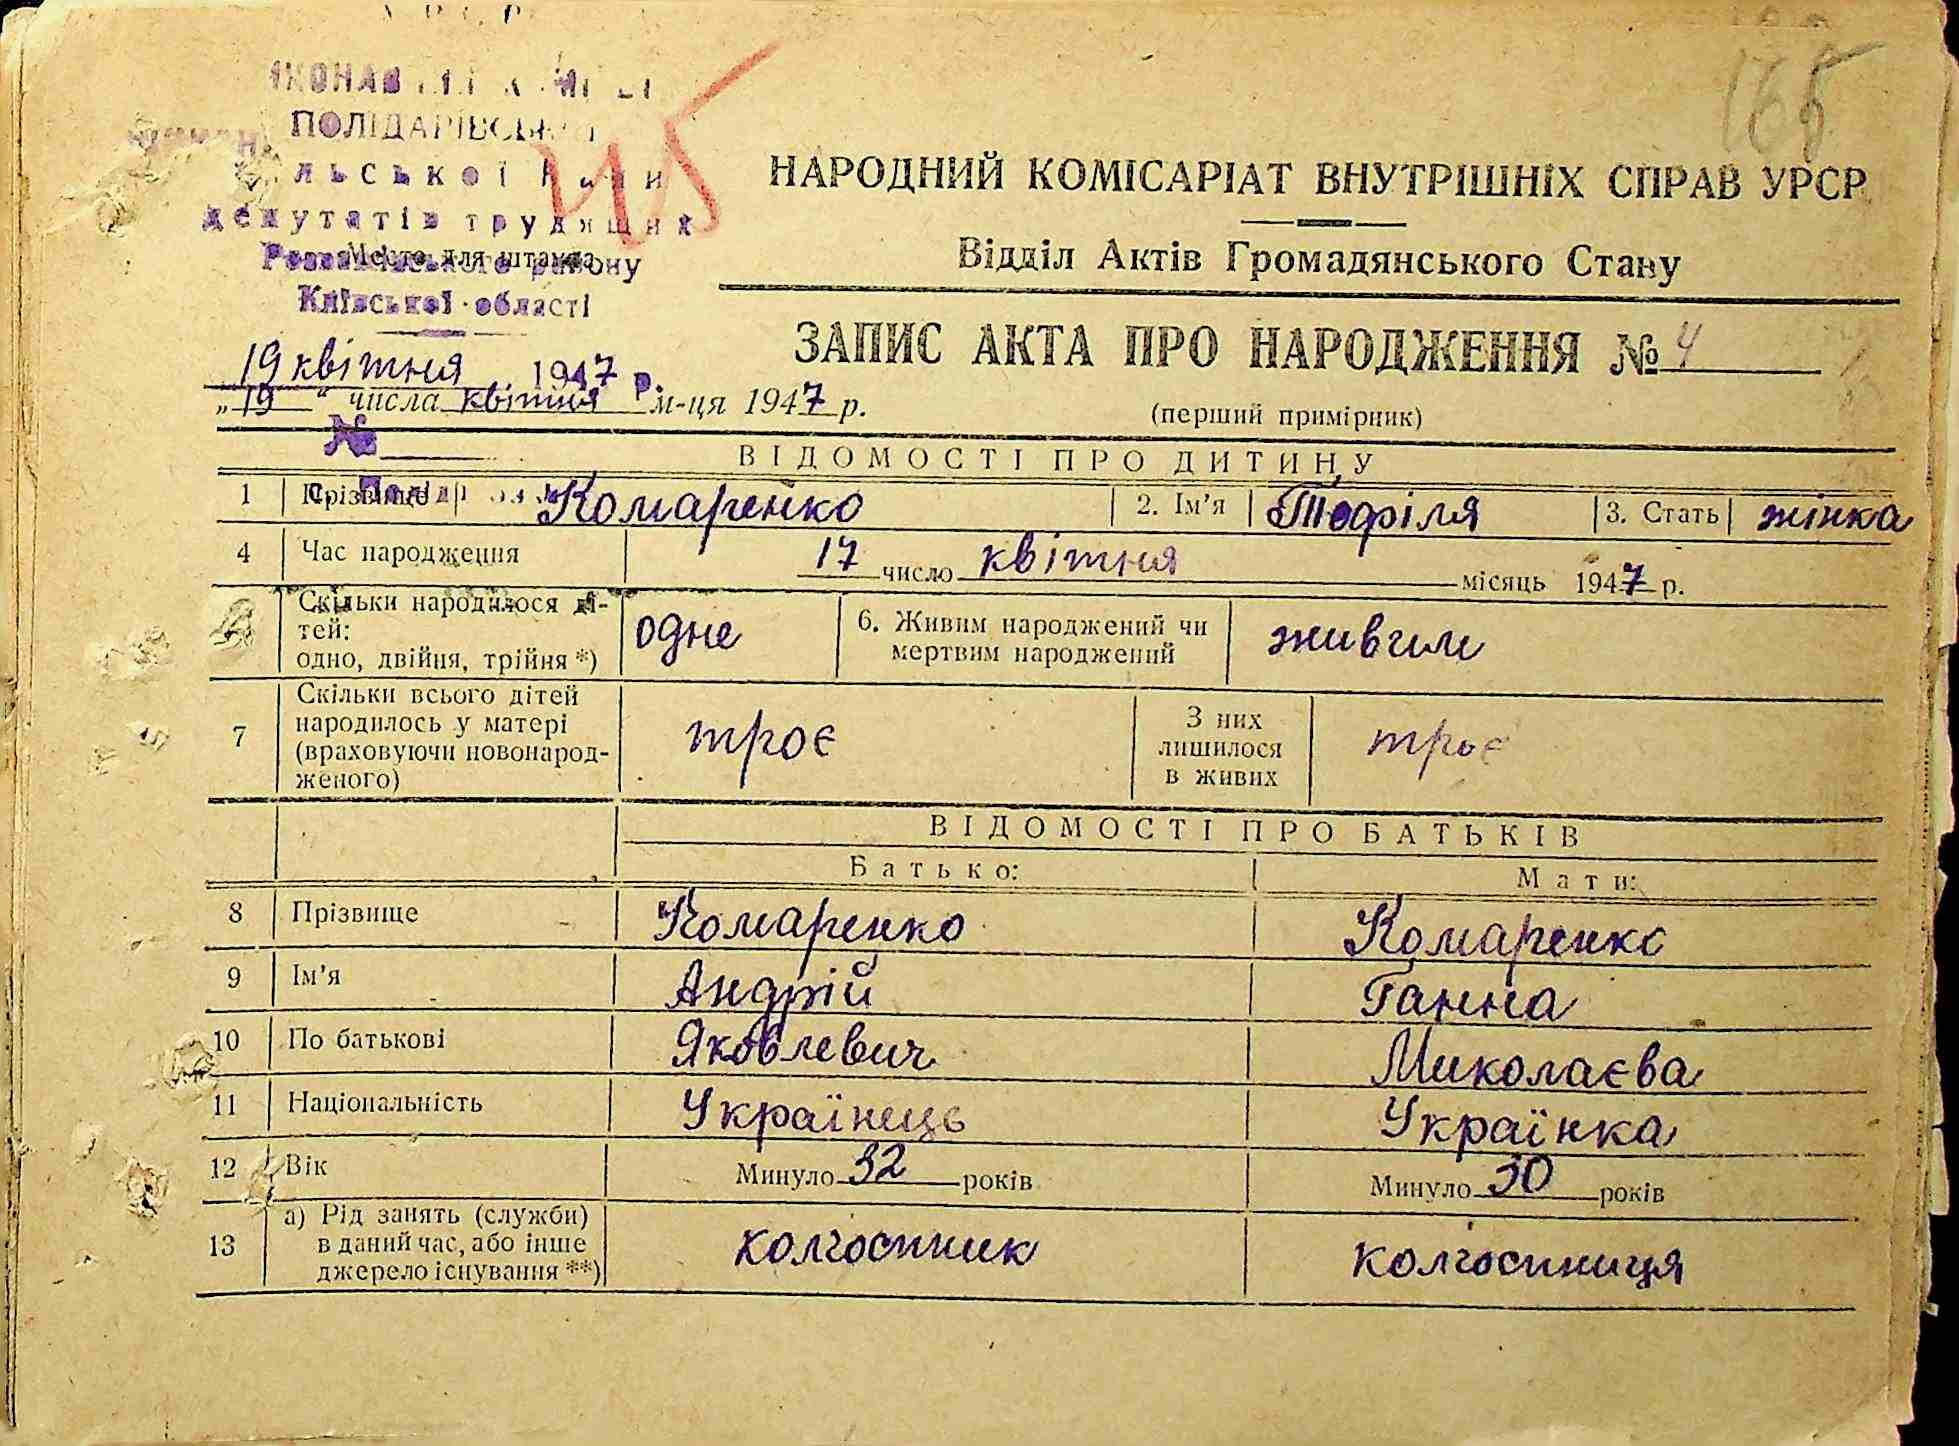 165
45
ПОЛІДАРІВСЬКО
депутатів трудящих
району
Київської області
Место для штампа
19 квітня 1947 р.
„19“ числа квітня м-ця 1947 р.
№
НАРОДНИЙ КОМІСАРІАТ ВНУТРІШНІХ СПРАВ УРСР
Відділ Актів Громадянського Стану
ЗАПИС АКТА ПРО НАРОДЖЕННЯ № 4
(перший примірник)
ВІДОМОСТІ ПРО ДИТИНУ
1 Прізвище Комаренко 2. Ім’я Теофіля 3. Стать жінка
4 Час народження 17 число квітня місяць 1947 р.
Скільки народилося ді-
тей:
одно, двійня, трійня *) одне 6. Живим народжений чи
мертвим народжений живим
7 Скільки всього дітей
народилось у матері
(враховуючи новонарод-
женого) троє З них
лишилося
в живих троє
ВІДОМОСТІ ПРО БАТЬКІВ
Батько: Мати:
8 Прізвище Комаренко Комаренко
9 Ім’я Андрій Ганна
10 По батькові Яковлевич Миколаєва
11 Національність Українець Українка
12 Вік Минуло 32 років Минуло 30 років
13 а) Рід занять (служби)
в даний час, або інше
джерело існування **) колгоспник колгоспниця